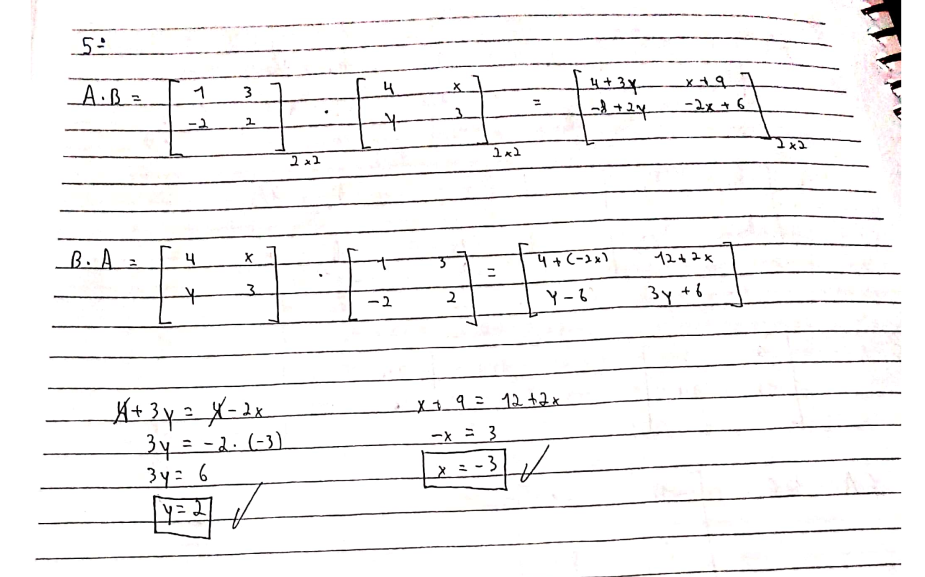 5ª
A.B = [ 1 3 ; -2 2 ]2x2 . [ 4 x ; y 3 ]2x2 = [ 4+3y x+9 ; -8+2y -2x+6 ]2x2
B.A = [ 4 x ; y 3 ] . [ 1 3 ; -2 2 ] = [ 4+(-2x) 12+2x ; y-6 3y+6 ]
4+3y = 4-2x
3y = -2.(-3)
3y = 6
y=2 ✓
x+9 = 12+2x
-x = 3
x=-3 ✓